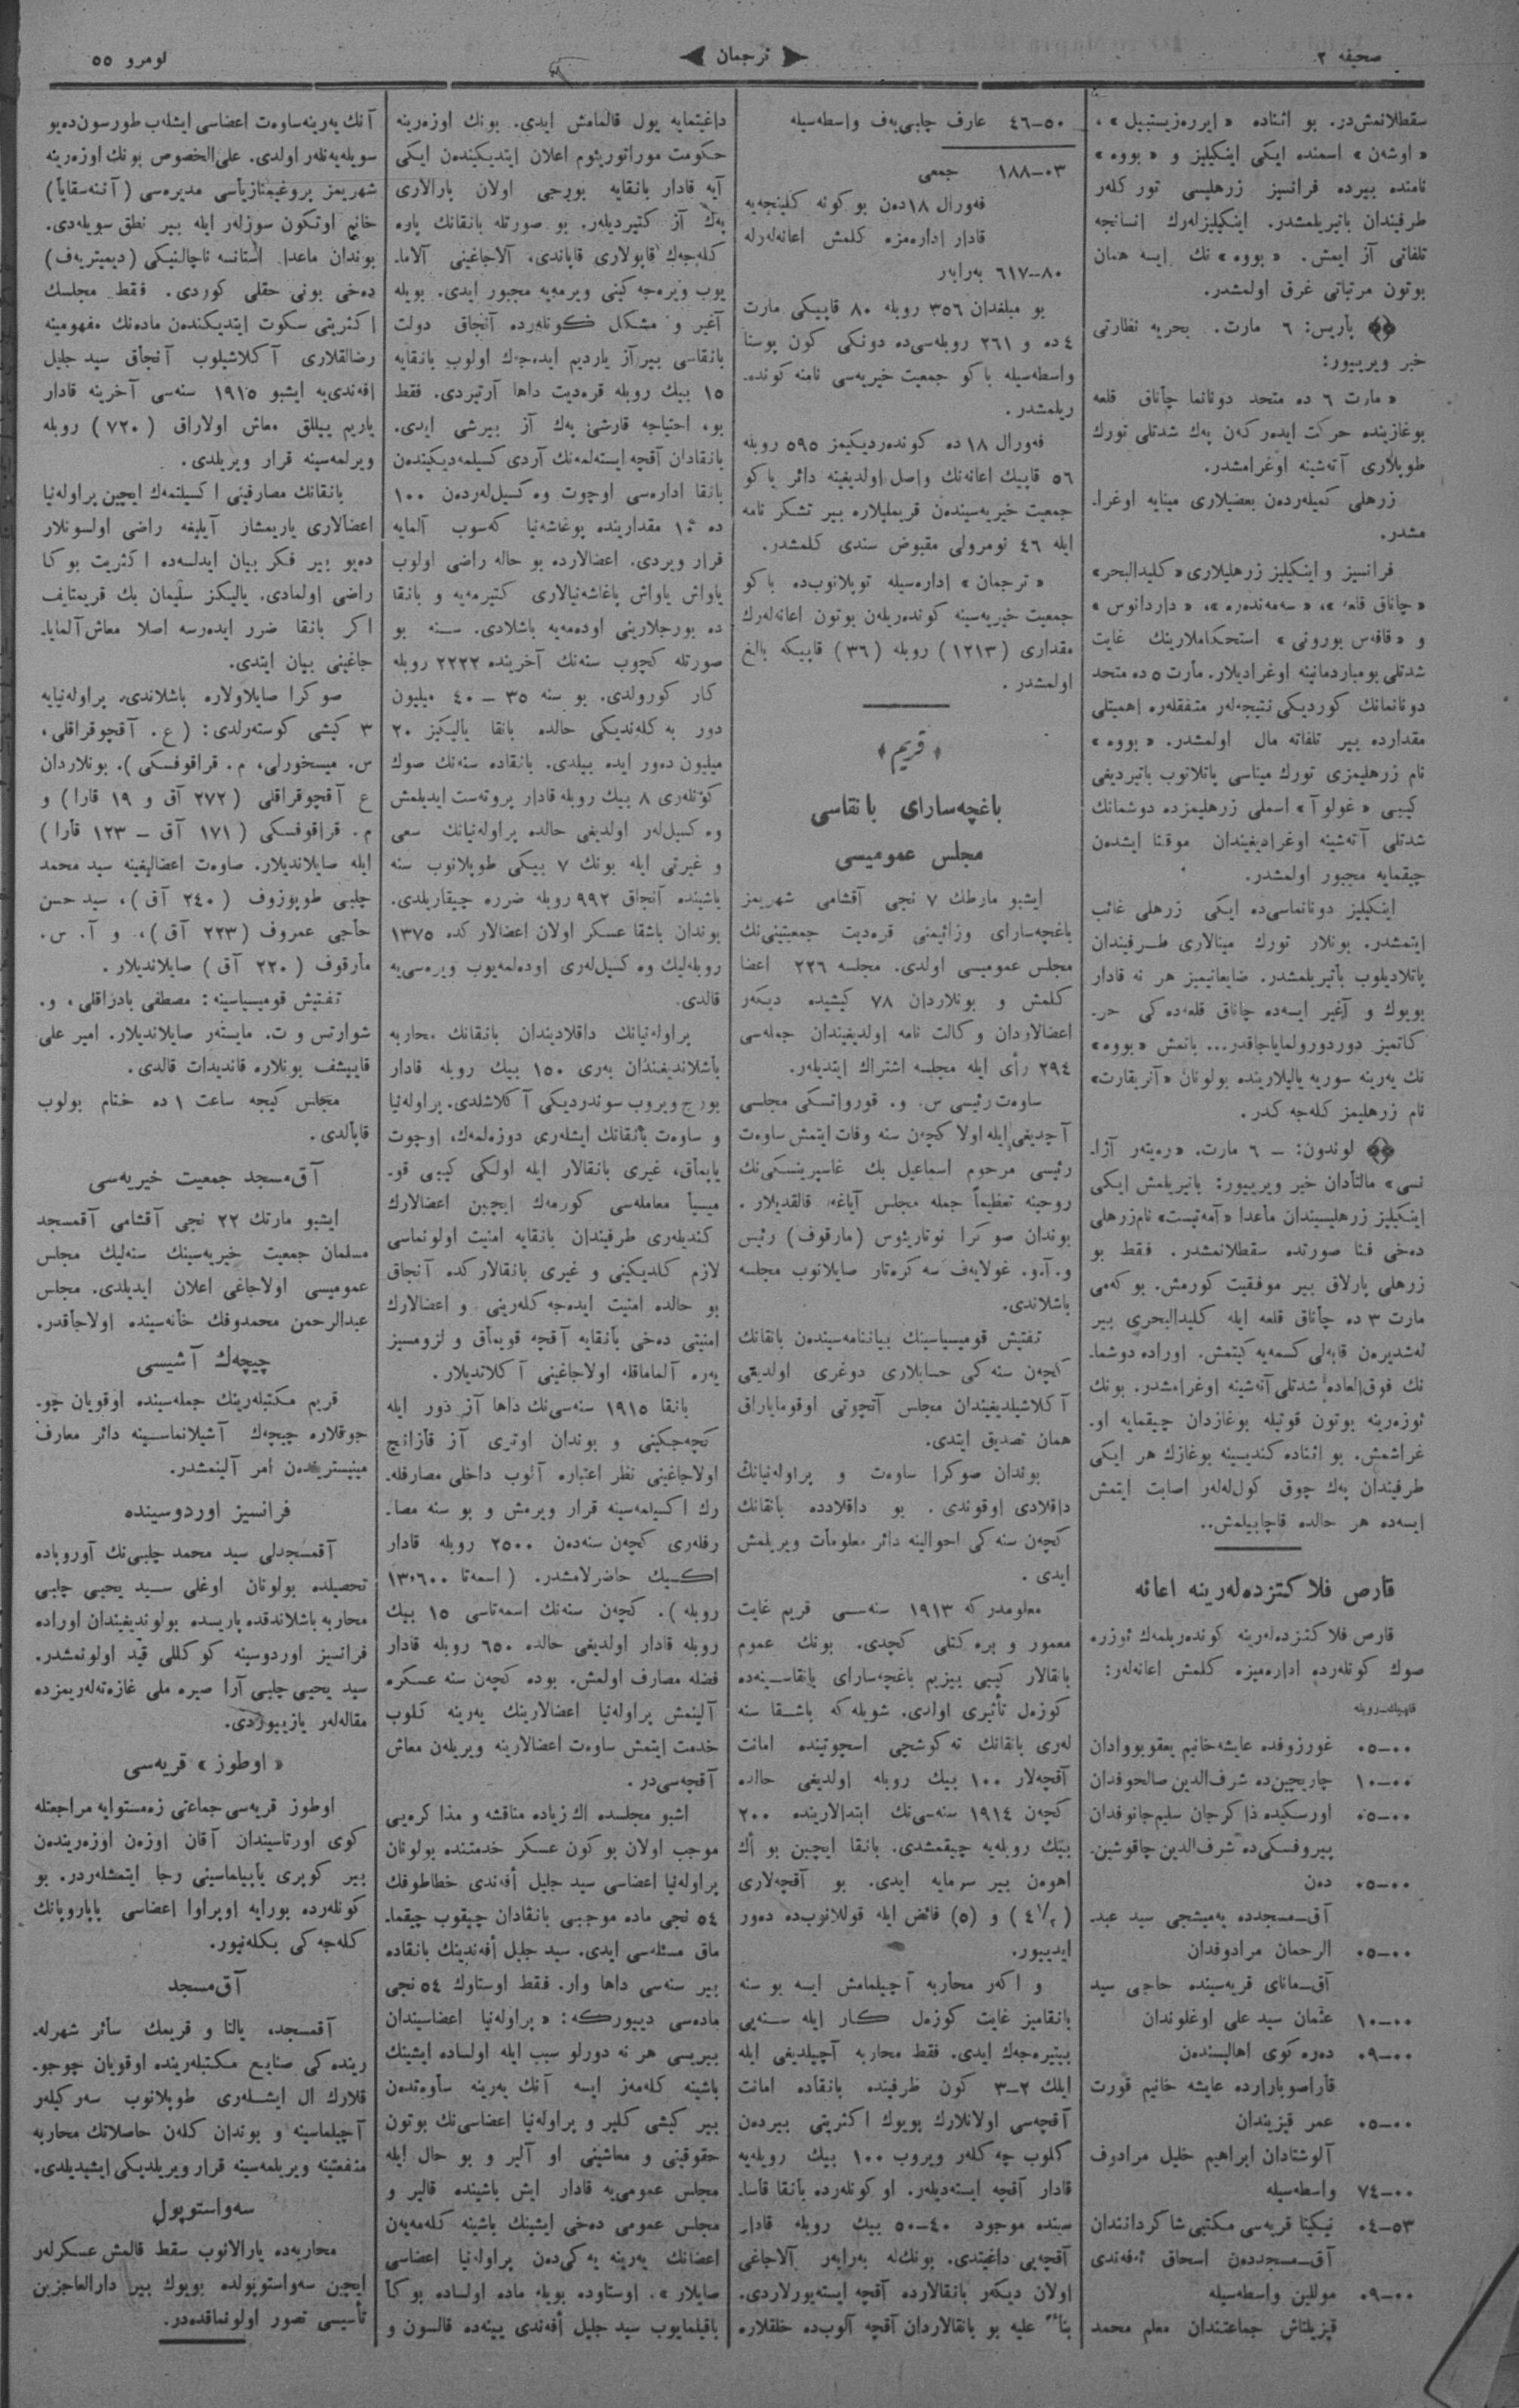 صحیفه ۲
ترجمان
لومرو ٥٥
سقطلانمش‌در. بو اثناده « ایرره‌زیستیبیل » ،
« اوشه‌ن » اسمنده ایکی اینکیلیز و « بووه »
نامنده بیرده فرانسیز زرهلیسی تورکلەر
طرفیندان باتیریلمشدر. اینکیلیزلەرك انسانجه
تلفاتی آز ایمش. « بووه » نك ایسه همان
بوتون مرتباتی غرق اولمشدر.
پاریس: ٦ مارت. بحریه نظارتی
خبر ویرییور:
« مارت ٦ ده متحد دونانما چأناق قلعه
بوغازینده حرکت ایده‌رکه‌ن یه‌ك شدتلی تورك
طوپلاری آته‌شینه اوغرامشدر.
زرهلی کمیله‌رده‌ن بعضیلاری مینایه اوغرا-
مشدر.
فرانسیز و اینکیلیز زرهلیلاری « کلیدالبحر »
« چاناق قلعه »، « سه‌مه‌نده‌ره »، « داردانوس »
و « قافه‌س بورونی » استحکاملارینك غایت
شدتلی بومباردمانینه اوغرادیلار. مأرت ٥ ده متحد
دونانمانك کوردیکی نتیجه‌لەر متفقلەره اهمیتلی
مقدارده بیر تلفاته مال اولمشدر. « بووه »
نام زرهلیمزی تورك میناسی پاتلانوب باتیردیغی
کیبی « غولوآ » اسملی زرهلیمزده دوشمانك
شدتلی آته‌شینه اوغرادیغیندان موقتا ایشدن
چیقمایه مجبور اولمشدر.
اینکیلیز دونانماسی‌ده ایکی زرهلی غائب
ایتمشدر. بونلار تورك مینالاری طرفیندان
پاتلادیلوب باتیریلمشدر. ضایعاتیمیز هر نه قادار
بویوك و آغیر ایسه‌ده چاناق قلعه‌ده کی حر-
کاتمیز دوردورولمایاجاقدر... باتمش « بووه »
نك یه‌رینه سوریه یالیلارینده بولونان « آنریقارت »
نام زرهلیمز کله‌جه کدر.
لوندون: – ٦ مارت. « ره‌یته‌ر آژا-
نسی » مالتأدان خبر ویرییور: باتیریلمش ایکی
اینکیلیز زرهلیسیندان مأعدا « آمه‌تیست » نام زرهلی
ده‌خی فنا صورتده سقطلانمشدر. فقط بو
زرهلی پارلاق بیر موفقیت کورمش. بو که‌می
مارت ۳ ده چأناق قلعه ایله کلیدالبحری بیر
له‌شدیره‌ن قابه‌لی کسمه‌یه کیتمش. اوراده دوشما-
نك فوق‌العاده شدتلی آته‌شینه اوغرامشدر. بونك
ئوزه‌رینه بوتون قوتیله بوغازدان چیقمایه او-
غراشمش. بو اثناده کندیسینه بوغازك هر ایکی
طرفیندان یه‌ك چوق کول‌له‌لەر اصابت ایتمش
ایسه‌ده هر حالده قاچابیلمش..
قارص فلاکتزده‌لەرینه اعانه
قارص فلاکتزده‌لەرینه کونده‌ریلمه‌ك ئوزره
صوك کونلەرده اداره‌میزه کلمش اعانه‌لەر:
قاپیك–روبله
٠٠–٠٥ غورزوفده عایشه خانیم یعقوبووادان
٠٠–١٠ چاریچین‌ده شرف‌الدین صالحوفدان
٠٠–٠٥ اورسکیده ذاکرجان سلیم‌جانوفدان
پیروفسکی‌ده شرف‌الدین چاقوشین-
٠٠–٠٥ ده‌ن
آق–مسجدده یه‌میشجی سید عبد-
٠٠–٠٥ الرحمان مرادوفدان
آق–مانای قریه‌سینده حاجی سید
٠٠–١٠ عثمان سید علی اوغلوندان
٠٠–٠٩ ده‌ره کوی اهالیسندن
قأراصوبازارده عایشه خانیم قورت
٠٠–٠٥ عمر قیزیندان
آلوشتادان ابراهیم خلیل مرادوف
٠٠–٧٤ واسطه‌سیله
٥٣–٠٤ نیکیتا قریه‌سی مکتبی شاکردانندان
آق–مسجدده‌ن اسحاق ئه‌فه‌ندی
٠٠–٠٩ موللین واسطه‌سیله
قیزیلتاش جماعتندان معلم محمد
٥٠–٤٦ عارف چلبی‌یه‌ف واسطه‌سیله
٠٣–١٨٨ جمعی
فه‌ورال ١٨ ده‌ن بو کونه کلینجه‌یه
قادار اداره‌مزه کلمش اعانه‌لەرله
٨٠–٦١٧ به‌رابه‌ر
بو مبلغدان ٣٥٦ روبله ٨٠ قاپیکی مارت
٤ ده و ٢٦١ روبله‌سی‌ده دونکی کون پوستا
واسطه‌سیله باکو جمعیت خیریه‌سی نامنه کونده-
ریلمشدر.
فه‌ورال ١٨ ده کونده‌ردیکیمز ٥٩٥ روبله
٥٦ قاپیك اعانه‌نك واصل اولدیغینه دائر باکو
جمعیت خیریه‌سیندەن قریملیلاره بیر تشکر نامه
ایله ٤٦ نومرولی مقبوض سندی کلمشدر.
« ترجمان » اداره‌سیله توپلانوب‌ده باکو
جمعیت خیریه‌سینه کونده‌ریلەن بوتون اعانه‌لەرك
مقداری (١٢١٣) روبله (٣٦) قاپیکه بالغ
اولمشدر.
قریم
باغچه‌سارای بانقاسی
مجلس عمومیسی
ایشبو مارطك ٧ نجی آقشامی شهریمز
باغچه‌سارای وزائیمنی قره‌دیت جمعیتینی‌نك
مجلس عمومیسی اولدی. مجلسه ٢٢٦ اعضا
کلمش و بونلاردان ٧٨ کیشیده دیکەر
اعضالاردان وکالت نامه اولدیغیندان جمله‌سی
٢٩٤ رأی ایله مجلسه اشتراك ایتدیلەر.
ساوەت رئیسی س. و. قورواتسکی مجلسی
آچدیغی ایله اولا کچه‌ن سنه وفات ایتمش ساوەت
رئیسی مرحوم اسماعیل بك غاسپرینسکی‌نك
روحینه تعظیماً جمله مجلس آیاغه قالقدیلار.
بوندان صوکرا نوتاریئوس (مارقوف) رئیس
و. آ. و. غولایه‌ف سه‌کره‌تار صایلانوب مجلسه
باشلاندی.
تفتیش قومیسیاسینك بیاننامه‌سیندەن بانقانك
کچه‌ن سنه کی حسابلاری دوغری اولدیغی
آکلاشیلدیغیندان مجلس آتچوتی اوقومایاراق
همان تصدیق ایتدی.
بوندان صوکرا ساوەت و پراوله‌نیانك
داقلادی اوقوندی. بو داقلادده بانقانك
کچه‌ن سنه کی احوالینه دائر معلومأت ویریلمش
ایدی.
معلومدرکه ١٩١٣ سنه‌سی قریم غایت
معمور و بره‌کتلی کچدی. بونك عموم
بانقالار کیبی بیزیم باغچه‌سارای بانقاسینه‌ده
کوزەل تأثیری اولدی. شویله که باشقا سنه
لەری بانقانك ته‌کوشچی اسچوتینده امانت
آقچه‌لار ١٠٠ بیك روبله اولدیغی حالده
کچه‌ن ١٩١٤ سنه‌سی‌نك ابتدالارینده ٢٠٠
بیك روبله‌یه چیقمشدی. بانقا ایچین بو أك
اهوەن بیر سرمایه ایدی. بو آقچه‌لاری
(٤½) و (٥) فائض ایله قوللانوب‌ده ده‌ور
ایدییور.
و اکەر محاربه آچیلمامش ایسه بو سنه
بانقامیز غایت کوزەل کار ایله سنه‌یی
بیتیره‌جه‌ك ایدی. فقط محاربه آچیلدیغی ایله
ایلك ٢–٣ کون ظرفینده بانقاده امانت
آقچه‌سی اولانلارك بویوك اکثریتی بیردەن
کلوب چه‌کلەر ویروب ١٠٠ بیك روبله‌یه
قادار آقچه ایسته‌دیلەر. او کونلەرده بأنقا قأسا-
سینده موجود ٤٠–٥٠ بیك روبله قادار
آقچه‌یی داغیتدی. بونك‌له به‌رابه‌ر آلاجاغی
اولان دیکەر بانقالارده آقچه ایسته‌یورلاردی.
بنأً علیه بو بانقالاردان آقچه آلوب‌ده خلقلاره
داغیتمایه یول قالمامش ایدی. بونك اوزه‌رینه
حکومت موراتوریئوم اعلان ایتدیکیندەن ایکی
آیه قادار بانقایه بورجی اولان پارالاری
یه‌ك آز کتیردیلەر. بو صورتله بانقانك پاره
کله‌جه‌ك قاپولاری قاپاندی، آلاجاغینی آلاما-
یوب ویره‌جه کینی ویرمه‌یه مجبور ایدی. بویله
آغیر و مشکل کونلەرده آنجاق دولت
بانقاسی بیرآز یاردیم ایده‌جك اولوب بانقایه
١٥ بیك روبله قره‌دیت داها آرتیردی. فقط
بو، احتیاجه قارشی یه‌ك آز بیرشی ایدی.
بانقادان آقچه ایسته‌لمه‌نك آردی کسیلمه‌دیکیندەن
بانقا اداره‌سی اوچوت وه‌کسیل‌لەردەن ١٠٠
ده ١٠ مقدارینده پوغاشه‌نیا که‌سوب آلمایه
قرار ویردی. اعضالارده بو حاله راضی اولوب
یاواش یاواش پاغاشه‌نیالاری کتیرمه‌یه و بانقا
ده بورجلارینی اوده‌مه‌یه باشلادی. سنه بو
صورتله کچوب سنه‌نك آخرینده ٢٢٢٢ روبله
کار کورولدی. بو سنه ٣٥ – ٤٠ میلیون
دور به کله‌ندیکی حالده بانقا یالیکیز ٢٠
میلیون ده‌ور ایده بیلدی. بانقاده سنه‌نك صوك
کونلەری ٨ بیك روبله قادار پروته‌ست ایدیلمش
وه‌کسیل‌لەر اولدیغی حالده پراوله‌نیانك سعی
و غیرتی ایله بونك ٧ بیکی طوپلانوب سنه
باشینده آنجاق ٩٩٢ روبله ضرره چیقاریلدی.
بوندان باشقا عسکر اولان اعضالار کده ١٣٧٥
روبله‌لیك وه‌کسیل‌لەری اوده‌لمه‌یوب ویره‌سی‌یه
قالدی.
پراوله‌نیانك داقلادیندان بانقانك محاربه
بأشلاندیغیندان به‌ری ١٥٠ بیك روبله قادار
بورج ویروب سوندردیکی آکلاشلدی. پراوله‌نیا
و ساوەت بانقانك ایشلەری دوزه‌لمه‌ك، اوچوت
یاپماق، غیری بانقالار ایله اولکی کیبی قو-
میسیأ معامله‌سی کورمه‌ك ایچین اعضالارك
کندیلەری طرفیندان بانقایه امنیت اولونماسی
لازم کلدیکینی و غیری بانقالارکده آنجاق
بو حالده امنیت ایده‌جه کلەرینی و اعضالارك
امنیتی ده‌خی بأنقایه آقچه قویمأق و لزومسیز
یه‌ره آلماماقله اولاجاغینی آکلاندیلار.
بانقا ١٩١٥ سنه‌سی‌نك داها آز دور ایله
کچه‌جکینی و بوندان اوتیری آز قازانج
اولاجاغینی نظر اعتباره آلوب داخلی مصارفله-
رك اکسیلمه‌سینه قرار ویرمش و بو سنه مصا-
رفلەری کچه‌ن سنه‌دەن ٢٥٠٠ روبله قادار
اکسیك حاضرلامشدر. (اسمه‌تا ١٣٠٦٠٠
روبله). کچه‌ن سنه‌نك اسمه‌تاسی ١٥ بیك
روبله قادار اولدیغی حالده ٦٥٠ روبله قادار
فضله مصارف اولمش. بوده کچه‌ن سنه عسکره
آلینمش پراوله‌نیا اعضالارینك یه‌رینه کلوب
خدمت ایتمش ساوەت اعضالارینه ویریلەن معاش
آقچه‌سی‌در.
اشبو مجلسده اك زیاده مناقشه و مذاکره‌یی
موجب اولان بو کون عسکر خدمتنده بولونان
پراوله‌نیا اعضاسی سید جلیل أفه‌ندی خطاطوفك
٥٤ نجی ماده موجبی بانقادان چیقوب چیقما-
ماق مسئله‌سی ایدی. سید جلیل أفه‌ندینك بانقاده
بیر سنه‌سی داها وار. فقط اوستاوك ٥٤ نجی
ماده‌سی دییورکه: « پراوله‌نیا اعضاسیندان
بیریسی هر نه دورلو سبب ایله اولساده ایشینك
باشینه کله‌مه‌ز ایسه آنك یه‌رینه سأوەتدەن
بیر کیشی کلیر و پراوله‌نیا اعضاسی‌نك بوتون
حقوقینی و معاشینی او آلیر و بو حال ایله
مجلس عمومی‌یه قادار ایش باشینده قالیر و
مجلس عمومی ده‌خی ایشینك باشینه کله‌مه‌یەن
اعضانك یه‌رینه یه‌کی‌دەن پراوله‌نیا اعضاسی
صایلار ». اوستاوده بویله ماده اولساده بوکأ
باقیلمایوب سید جلیل أفه‌ندی یینه‌ده قالسون و
آنك یه‌رینه ساوەت اعضاسی ایشله‌ب طورسون ده‌یو
سویله‌یه‌نلەر اولدی. علی‌الخصوص بونك اوزه‌رینه
شهریمز پروغیمنازیأسی مدیره‌سی (آننه‌سقایأ)
خانم اوتکون سوزلەر ایله بیر نطق سویله‌دی.
بوندان ماعدا استانسه ناچالنیکی (دیمیتریه‌ف)
ده‌خی بونی حقلی کوردی. فقط مجلسك
اکثریتی سکوت ایتدیکندەن ماده‌نك مفهومینه
رضالقلاری آکلاشیلوب آنجأق سید جلیل
افه‌ندی‌یه ایشبو ١٩١٥ سنه‌سی آخرینه قادار
یاریم ییللق معاش اولاراق (٧٢٠) روبله
ویرلمه‌سینه قرار ویریلدی.
بانقانك مصارفینی اکسیلتمه‌ك ایچین پراوله‌نیا
اعضالاری یاریمشار آیلیغه راضی اولسونلار
ده‌یو بیر فکر بیان ایدلسه‌ده اکثریت بو کا
راضی اولمادی. یالیکز سلیمان بك قریمتایف
اکر بانقا ضرر ایده‌رسه اصلا معاش آلمایا-
جاغینی بیان ایتدی.
صوکرا صایلاولاره باشلاندی، پراوله‌نیایه
٣ کیشی کوسته‌رلدی: (ع. آقچوقراقلی،
س. میسخورلی، م. قراقوفسکی). بونلاردان
ع آقچوقراقلی (٢٧٢ آق و ١٩ قارا) و
م. قراقوفسکی (١٧١ آق – ١٢٣ قأرا)
ایله صایلاندیلار. صاوەت اعضالیغینه سید محمد
چلبی طوپوزوف (٢٤٠ آق)، سید حسن
حأجی عمروف (٢٢٣ آق)، و آ. س.
مأرقوف (٢٢٠ آق) صایلاندیلار.
تفتیش قومیسیاسینه: مصطفی بادراقلی، و.
شوارتس و ت. مایسته‌ر صایلاندیلار. امیر علی
قایپیشف بونلاره قاندیدات قالدی.
مجلس کیجه ساعت ١ ده ختام بولوب
قاپألدی.
آق‌مسجد جمعیت خیریه‌سی
ایشبو مارتك ٢٢ نجی آقشامی آقمسجد
مسلمان جمعیت خیریه‌سینك سنه‌لیك مجلس
عمومیسی اولاجاغی اعلان ایدیلدی. مجلس
عبدالرحمن محمدوفك خأنه‌سینده اولاجأقدر.
چیچه‌ك آشیسی
قریم مکتبلەرینك جمله‌سینده اوقویان چو-
جوقلاره چیچه‌ك آشیلانماسینه دائر معارف
مینیستریندەن أمر آلینمشدر.
فرانسیز اوردوسینده
آقمسجدلی سید محمد چلبی‌نك آوروپاده
تحصیلده بولونان اوغلی سید یحیی چلبی
محاربه باشلاندقده پاریسده بولوندیغیندان اوراده
فرانسیز اوردوسینه کوکللی قید اولونمشدر.
سید یحیی چلبی آرا صیره ملی غازه‌ته‌لەریمزده
مقاله‌لەر یازییوردی.
« اوطوز » قریه‌سی
اوطوز قریه‌سی جماعتی زه‌مستوایه مراجعتله
کوی اورتاسیندان آقان اوزەن اوزه‌ریندەن
بیر کوپری یاپیلماسینی رجا ایتمشلەردر. بو
کونلەرده بورایه اوپراوا اعضاسی پاپاروپانك
کله‌جه کی بکله‌نیور.
آق‌مسجد
آقمسجد، یالتا و قریمك سأئر شهرلە-
رینده کی صنایع مکتبلەرینده اوقویان چوجو-
قلارك ال ایشلەری طوپلانوب سه‌رکیلەر
آچیلماسینه و بوندان کله‌ن حاصلاتك محاربه
منفعتینه ویریلمه‌سینه قرار ویریلدیکی ایشیدیلدی.
سه‌واستوپول
محاربه‌ده یارالانوب سقط قالمش عسکرلەر
ایچین سه‌واستوپولده بویوك بیر دارالعاجزین
تأسیسی تصور اولونماقده‌در.